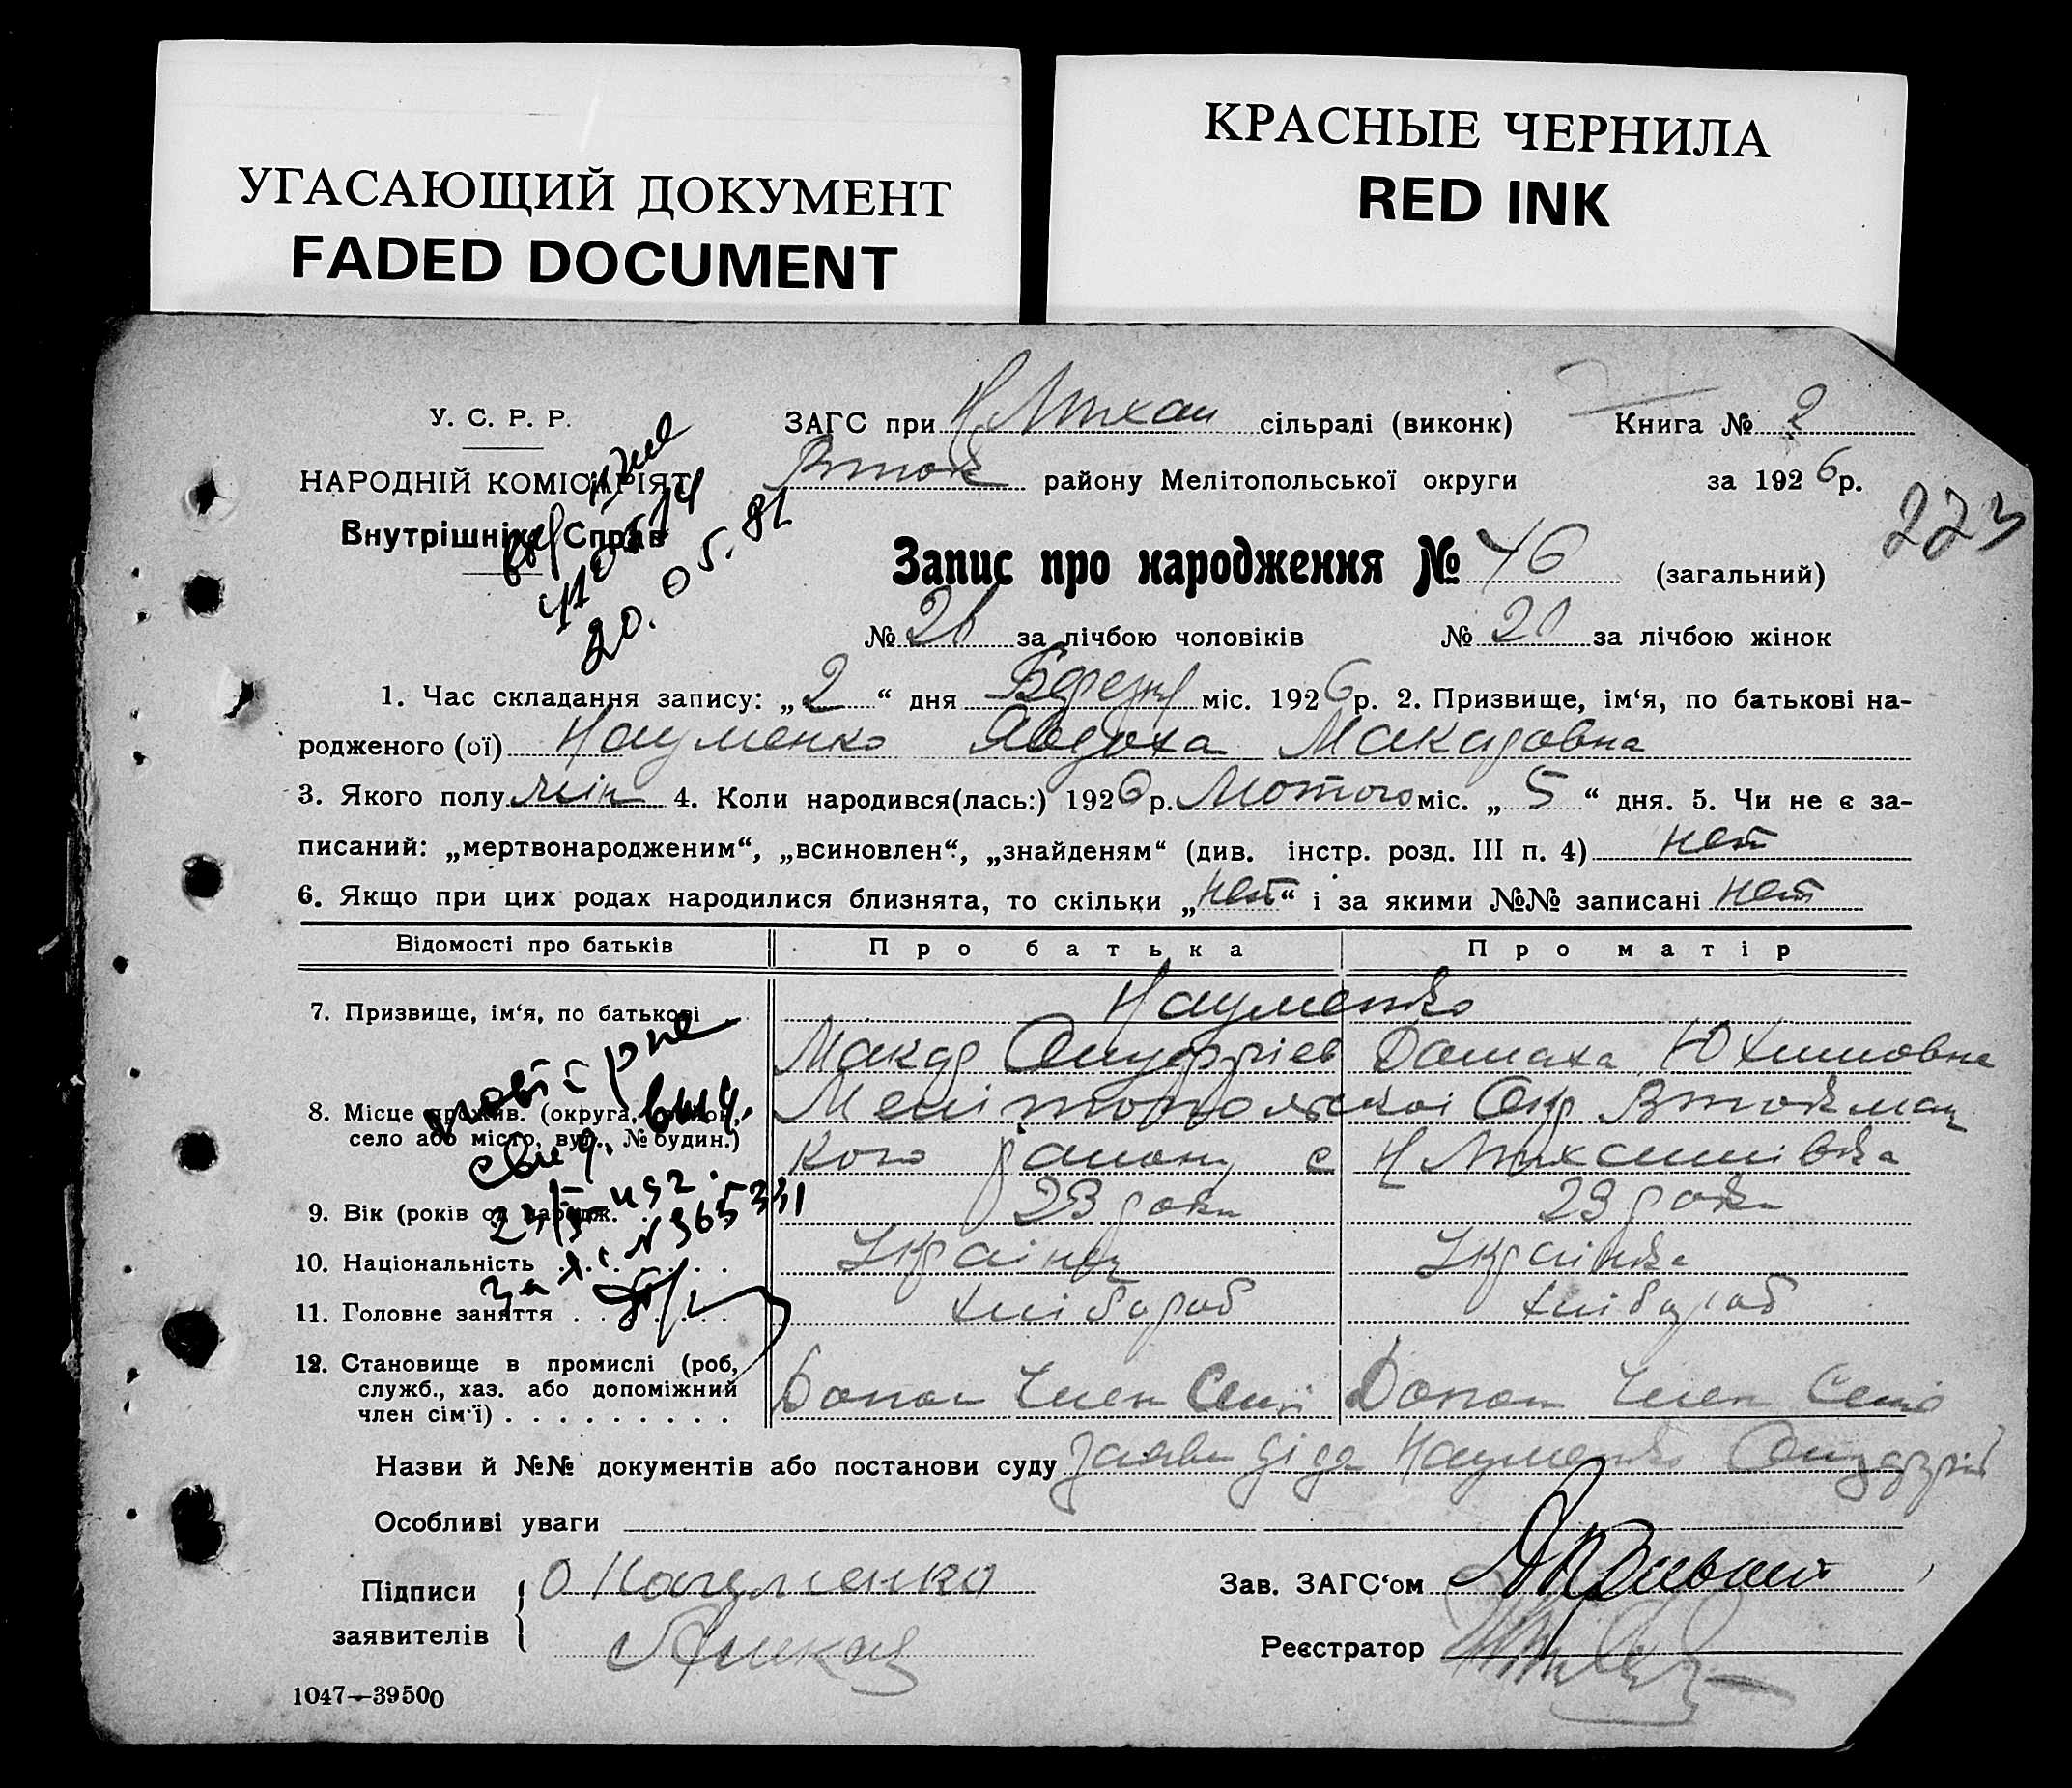 УГАСАЮЩИЙ ДОКУМЕНТ
FADED DOCUMENT
КРАСНЫЕ ЧЕРНИЛА
RED INK
У. С. Р. Р.
НАРОДНІЙ КОМІСАРІЯТ
Внутрішніх Справ
20.05.81
ЗАГС при Н Михай сільраді (виконк) Книга № 2
Вток району Мелітопольської округи за 1926 р.
223
Запис про народження № 46 (загальний)
№ 26 за лічбою чоловіків № 20 за лічбою жінок
1. Час складання запису: „2“ дня Березня міс. 1926 р. 2. Призвище, ім‘я, по батькові на-
родженого (ої) Науменко Явдоха Макаровна
3. Якого полу жін 4. Коли народився(лась:) 1926 р. Лютого міс. „5“ дня. 5. Чи не є за-
писаний: „мертвонародженим“, „всиновлен“, „знайденям“ (див. інстр. розд. III п. 4) нет
6. Якщо при цих родах народилися близнята, то скільки „нет“ і за якими №№ записані нет
Відомості про батьків Про батька Про матір
7. Призвище, ім‘я, по батькові Науменко
Макар Онуфріев Домаха Юхимовна
8. Місце прожив. (округа, район, Мелітопольскоі Окр Втокмац
село або місто, вул., № будин.) кого району с Н Михайлівка
повторне выд.
свид.
9. Вік (років од народж. 23 роки 23 роки
за № 365331
10. Національність Українец Українка
11. Головне заняття хлібороб хлібороб
12. Становище в промислі (роб,
служб., хаз. або допоміжний
член сім‘ї) Допом Член Семі Допом Член Семі
Назви й №№ документів або постанови суду Заява діда Науменко Онуфрій
Особливі уваги
Підписи
заявителів
О Науменко
Зав. ЗАГС‘ом
Реєстратор
1047—39500